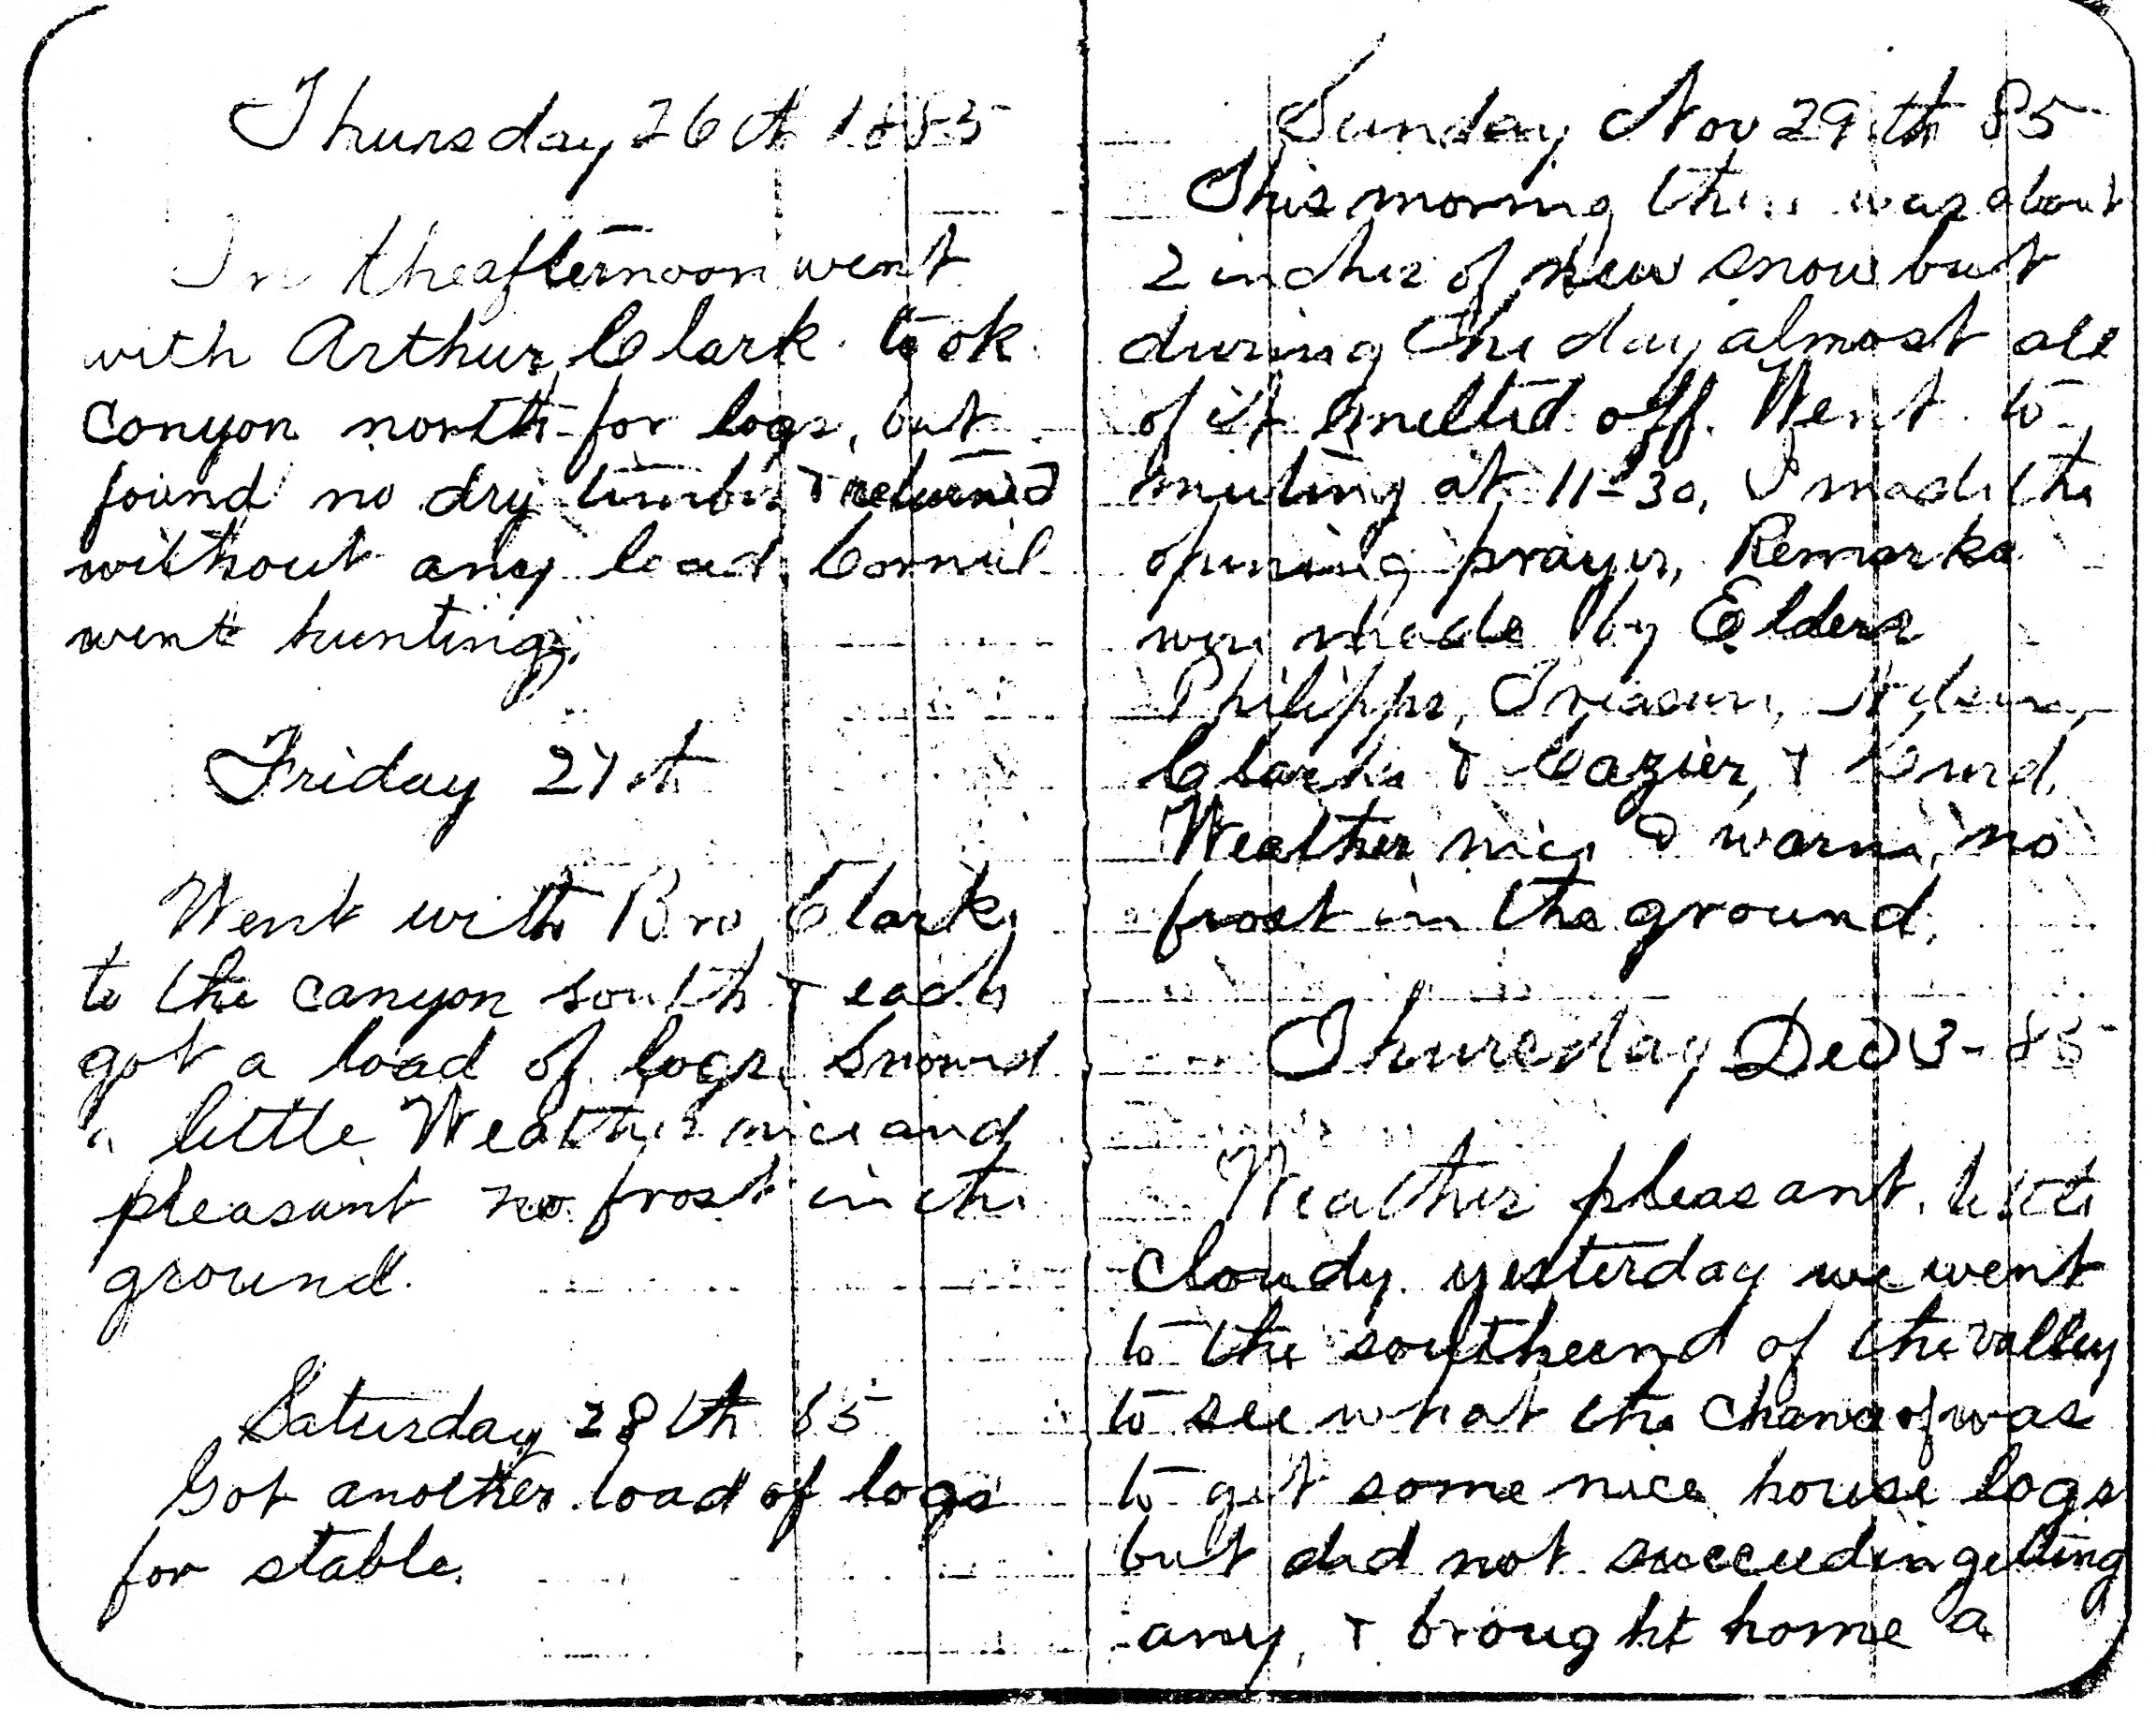 Thursday 26th 1885
In the afternoon went
with Arthur Clark took
canyon north for logs, but
found no dry timber & returned
without any load. Cornial
went hunting.
Friday 27th
Went with Bro Clark
to the canyon south & each
got a load of logs. Snowed
a little Weather nice and
pleasant no frost in the
ground.
Saturday 28th 85
Got another load of logs
for stable.
Sunday Nov 29th 85
This morning there was about
2 inches of new snow but
during the day almost all
of it melted off. Went to
meeting at 11-30, I made the
opening prayer, Remarks
were made by Elders
Philipps, Treasure,
Clarke & Cazier, &
Weather nice & warm, no
frost in the ground.
Thursday Dec 3-85
Weather pleasant. little
cloudy. yesterday we went
to the southeernd of the valley
to see what the chance of was
to get some nice house logs
but did not succeed in getting
any, & brought home a